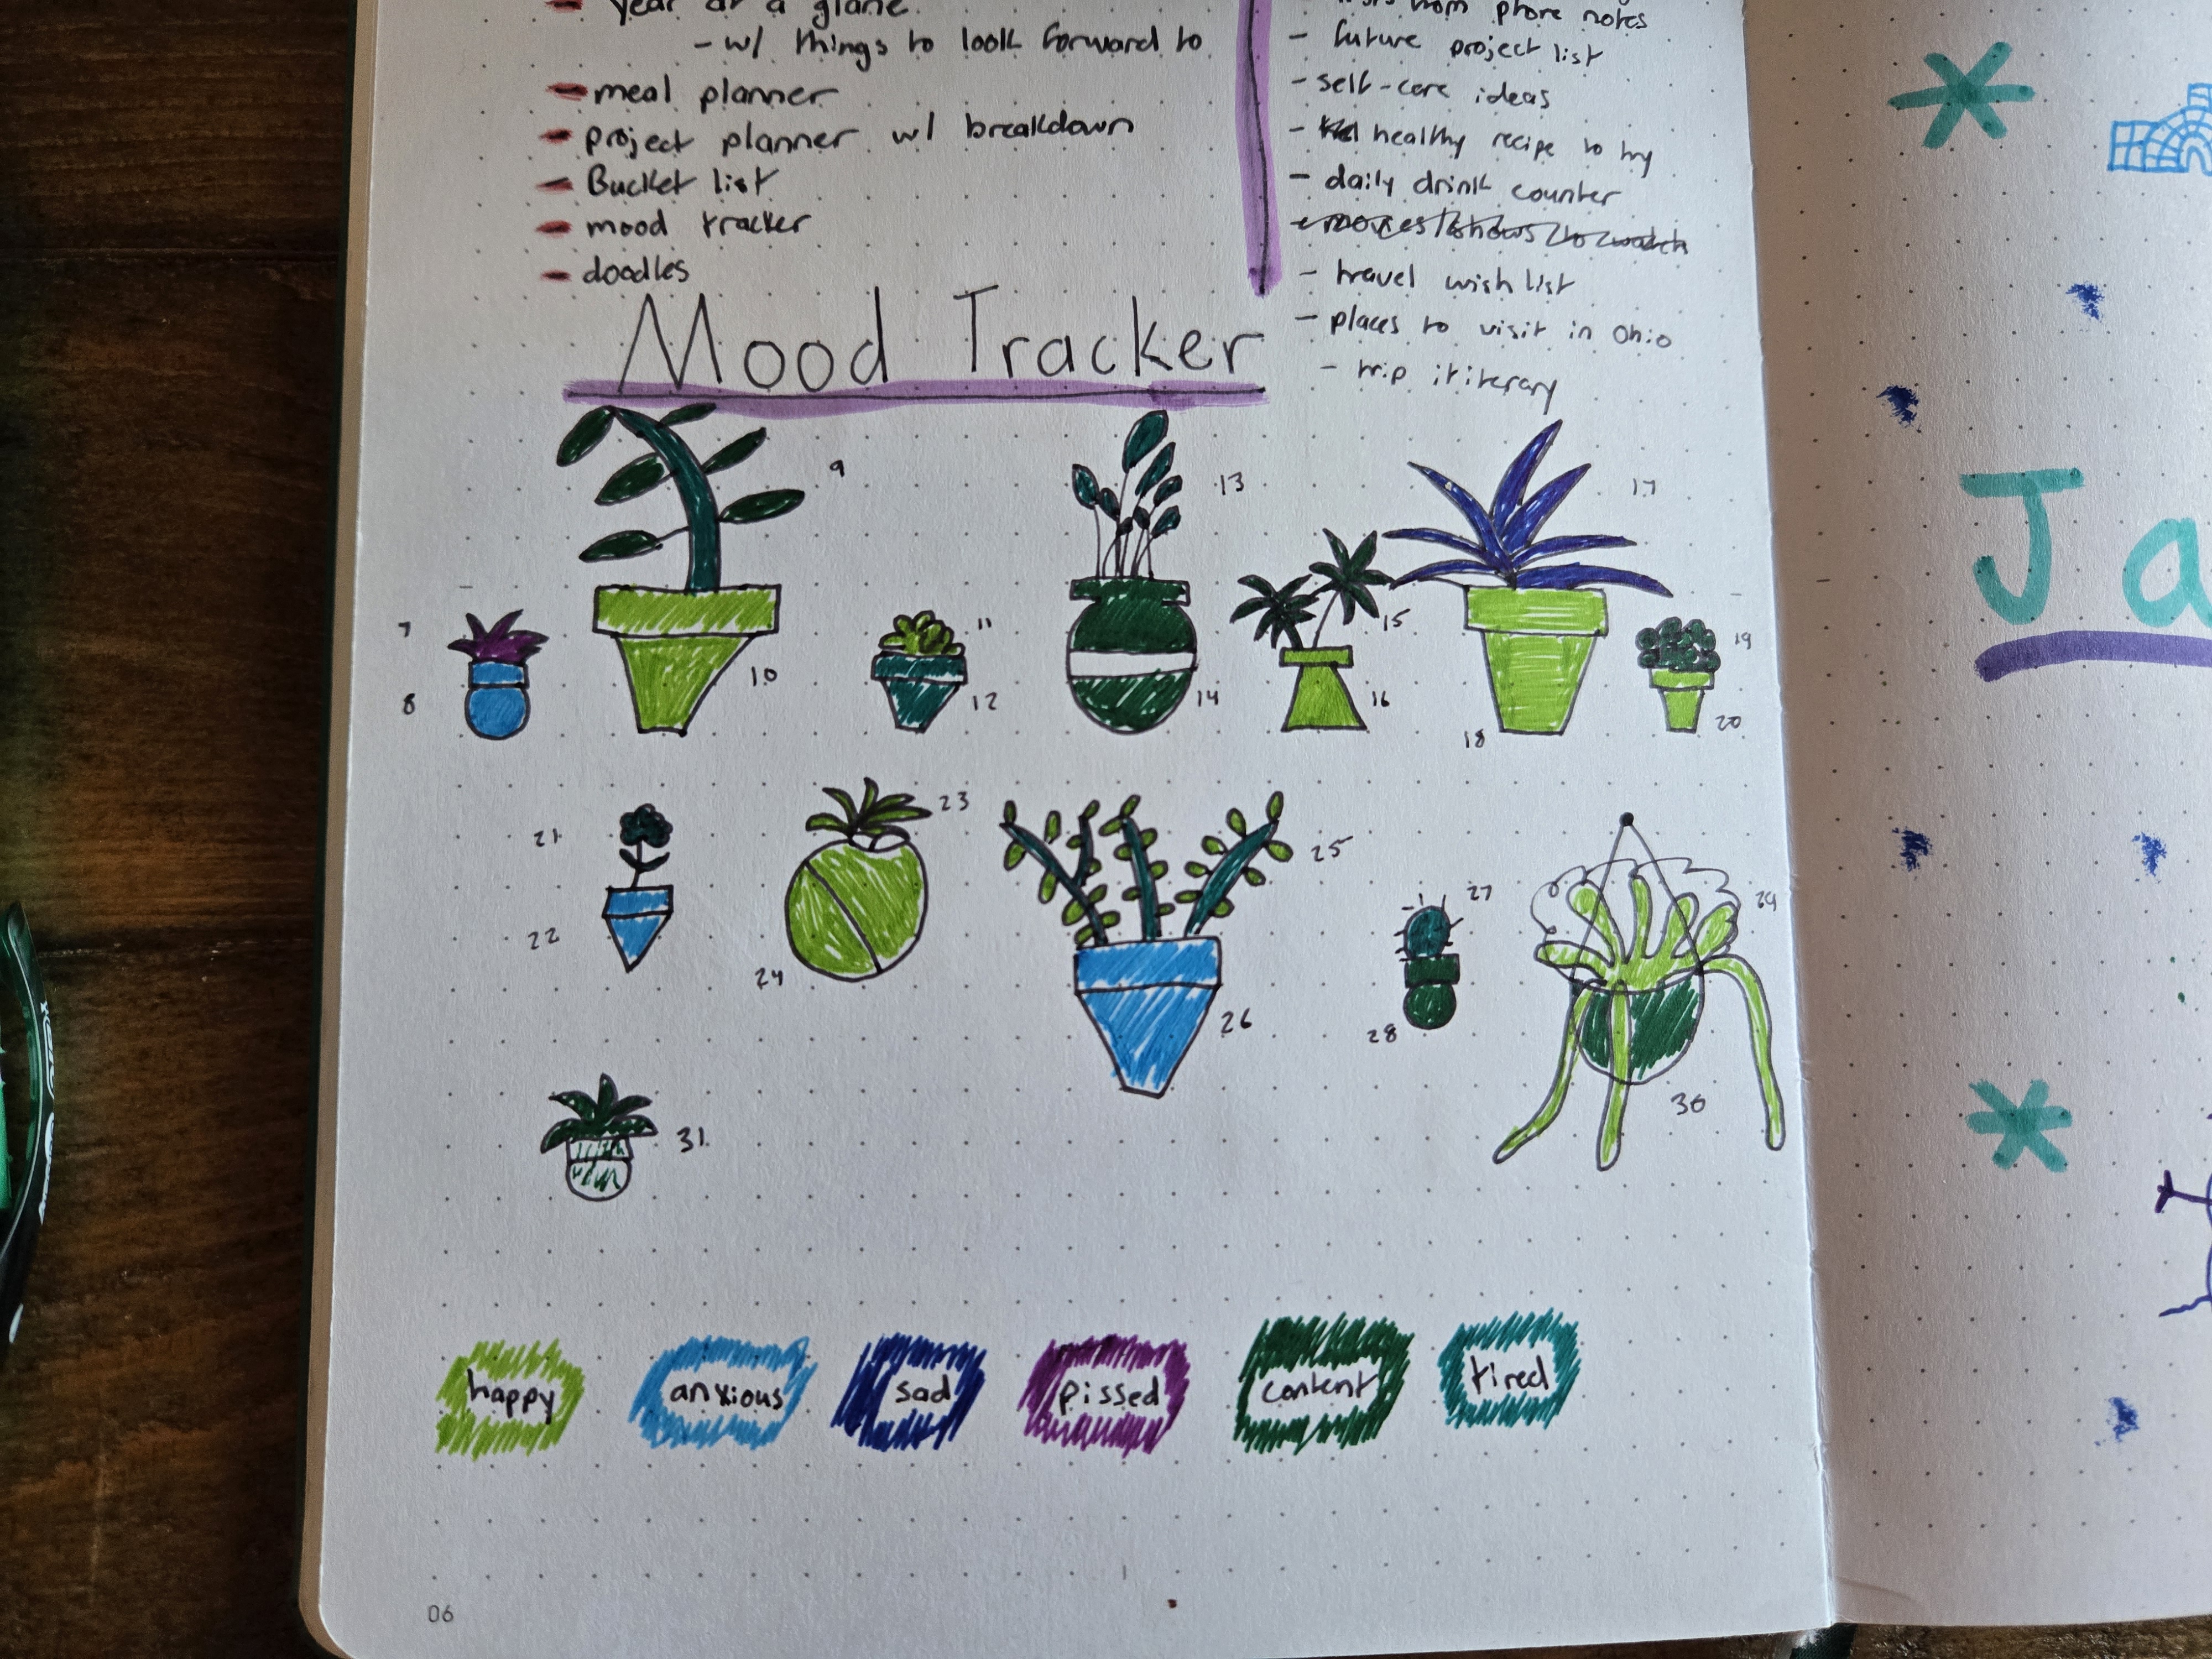 year at a glane
- w/ things to look forward to
- meal planner
- project planner w/ breakdown
- Bucket list
- mood tracker
- doodles
from phone notes
- future project list
- self-care ideas
- healthy recipe to try
- daily drink counter
- movies/shows to watch
- travel wish list
- places to visit in Ohio
- trip ititerary
Mood Tracker
9
13
17
7
11
15
19
8
10
12
14
16
18
20
21
23
25
27
29
22
24
26
28
30
31
happy
anxious
sad
pissed
content
tired
06
Ja